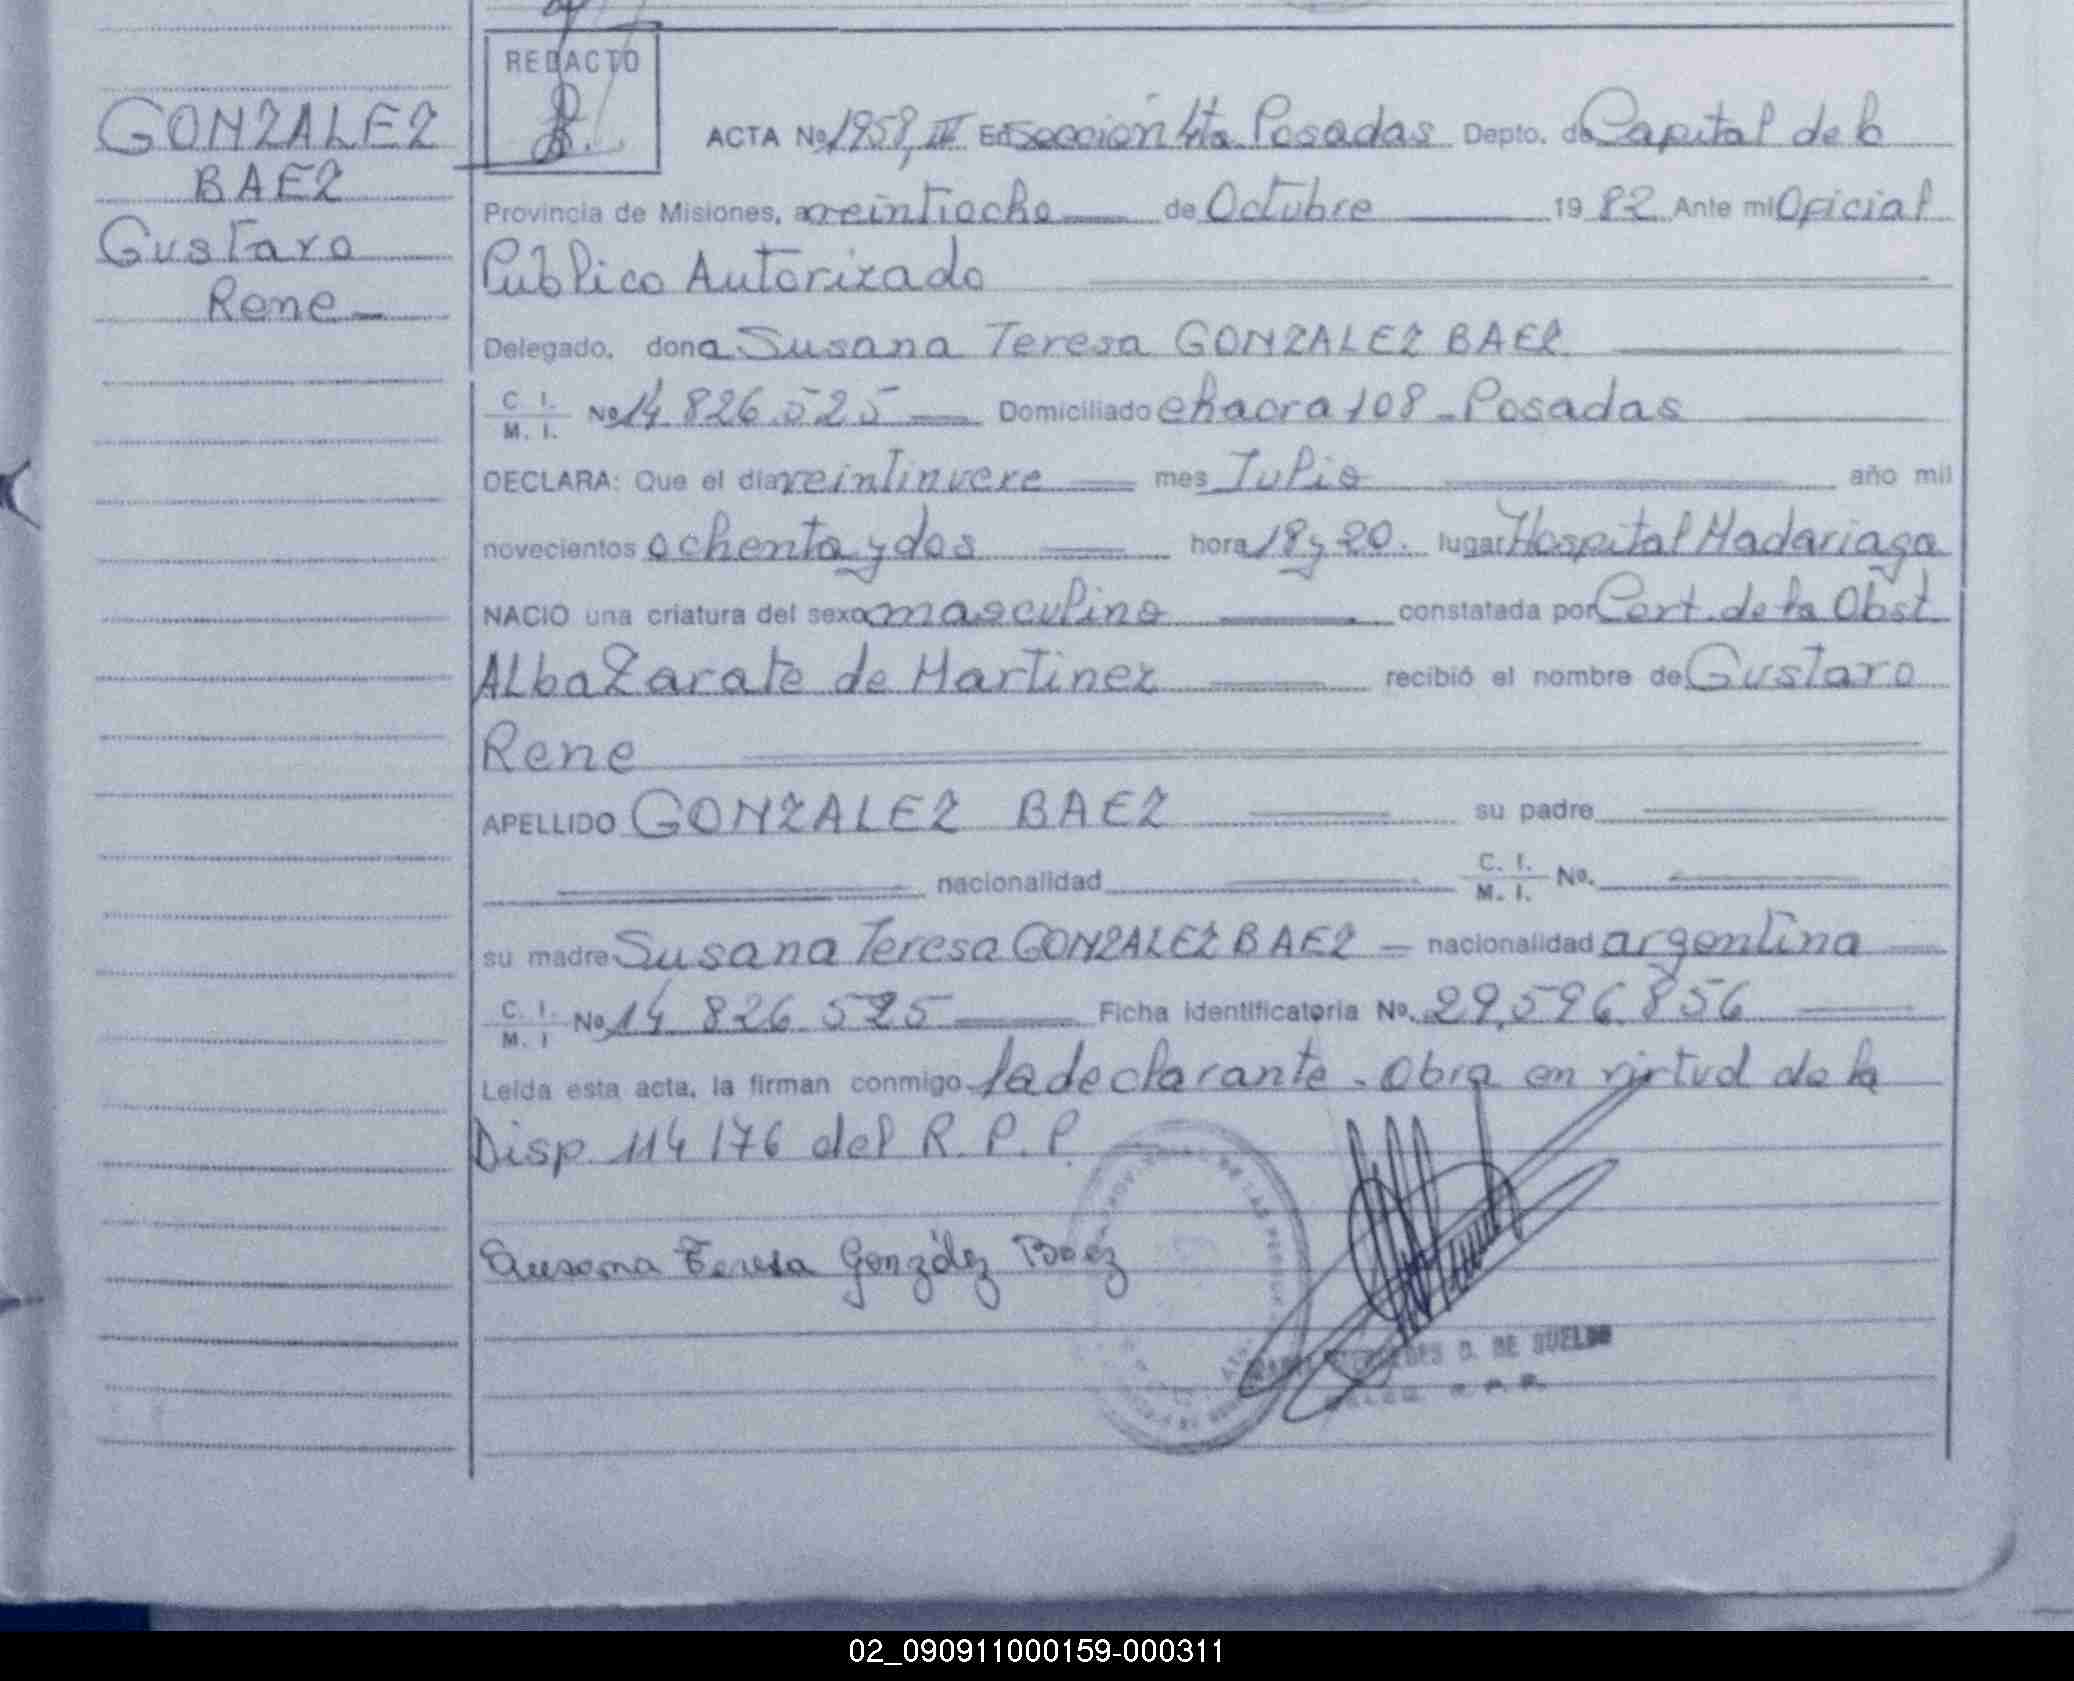 REDACTO
GONZALEZ
BAEZ
Gustavo
Rene
ACTA Nº 1958, IV En Sección 4ta. Posadas Depto. de Capital de la
Provincia de Misiones, a veintiocho de Octubre 19 82 Ante mi Oficial
Publico Autorizado
Delegado, dona Susana Teresa GONZALEZ BAEZ
C. I. M. I. Nº 14.826.525 Domiciliado chacra 108 - Posadas
DECLARA: Que el día veintinueve mes Julio año mil
novecientos ochenta y dos hora 18 y 20. lugar Hospital Madariaga
NACIO una criatura del sexo masculino constatada por Cert. de la Obst
Alba Zarate de Martinez recibió el nombre de Gustavo
Rene
APELLIDO GONZALEZ BAEZ su padre
nacionalidad C. I. M. I. No.
su madre Susana Teresa GONZALEZ BAEZ nacionalidad argentina
C. I. M. I Nº 14.826.525 Ficha identificatoria No. 29.596.856
Leída esta acta, la firman conmigo la declarante. Obra en virtud de la
Disp. 114/76 del R. P. P.
Susana Teresa González Baez
D. DE SUELDO
02_090911000159-000311